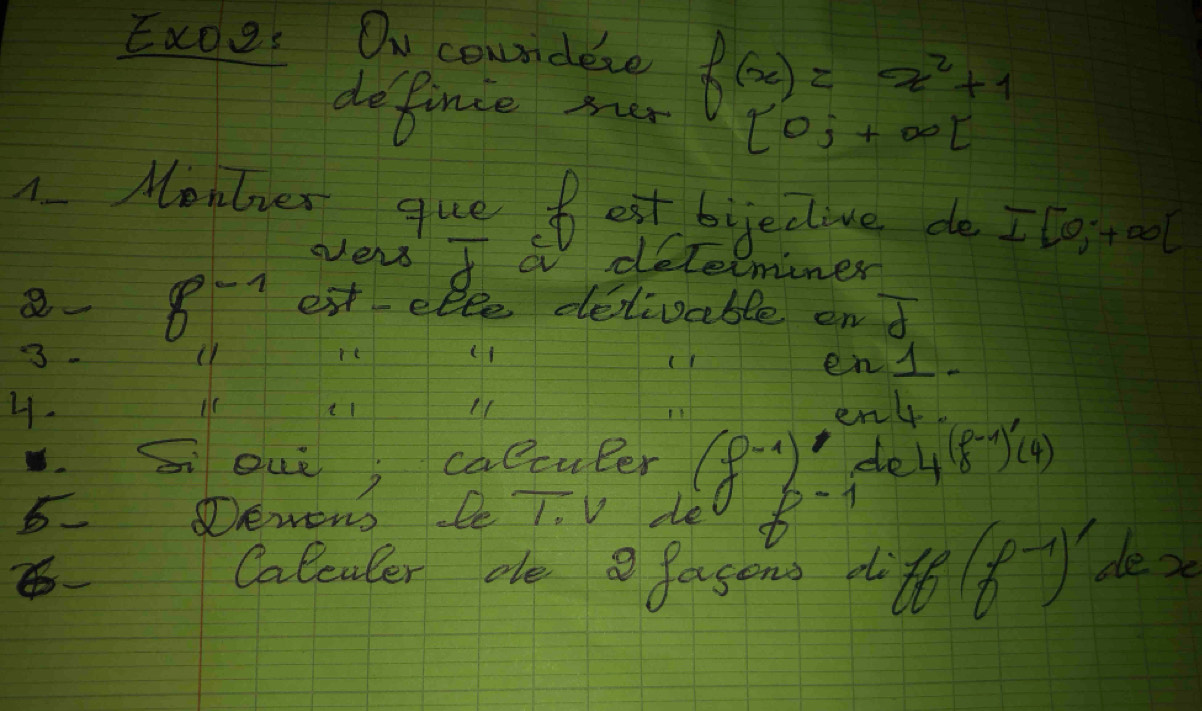 Exo2: On considére f(x) = x² + 1
définie sur [0; + ∞[
1- Montrer que f est bijective de I[0; +∞[
vers J à déterminer
2- f⁻¹ est-elle dérivable en J
3- " " " " en 1.
4. " " " " en 4.
. Si oui ; calculer (f⁻¹)' de 4 (f⁻¹)'(4)
5- le T.V de f⁻¹
6- Calculer de 2 façons diff (f⁻¹)' de x